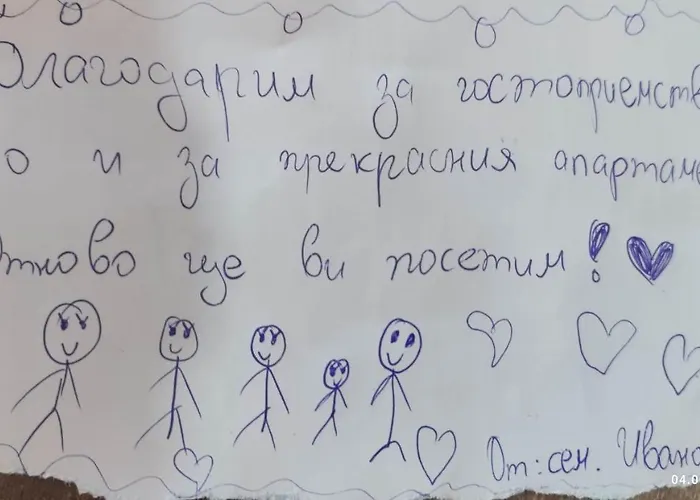 Благодарим за гостоприемств
о и за прекрасния апартаме
тново ще ви посетим!
От: сем. Ивано
04.0